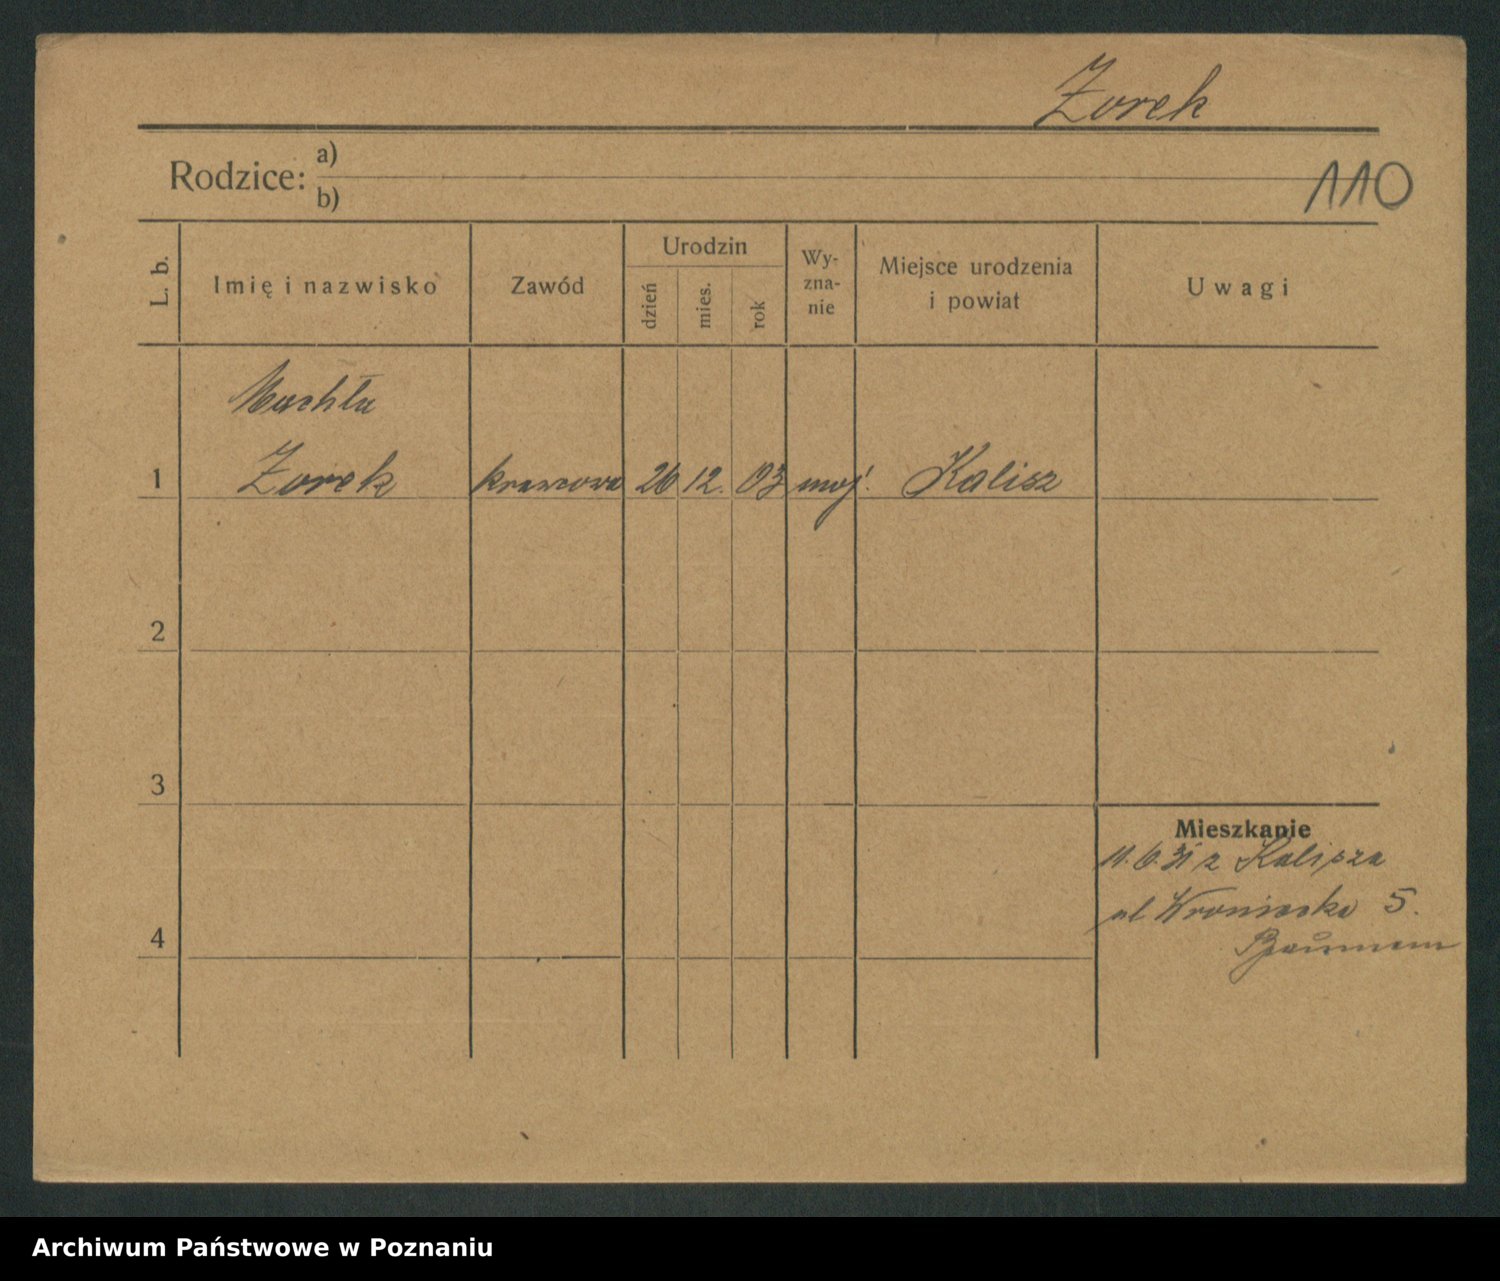 Żorek
Rodzice: a)
b)
110
L. b.
Imię i nazwisko
Zawód
Urodzin
dzień
mies.
rok
Wy-
zna-
nie
Miejsce urodzenia
i powiat
Uwagi
Machła
1 Żorek krawcowa 26 12. 03 moj. Kalisz
2
3
4
Mieszkanie
11.6.31 z Kalisza
ul. Wroniecka 5.
Archiwum Państwowe w Poznaniu